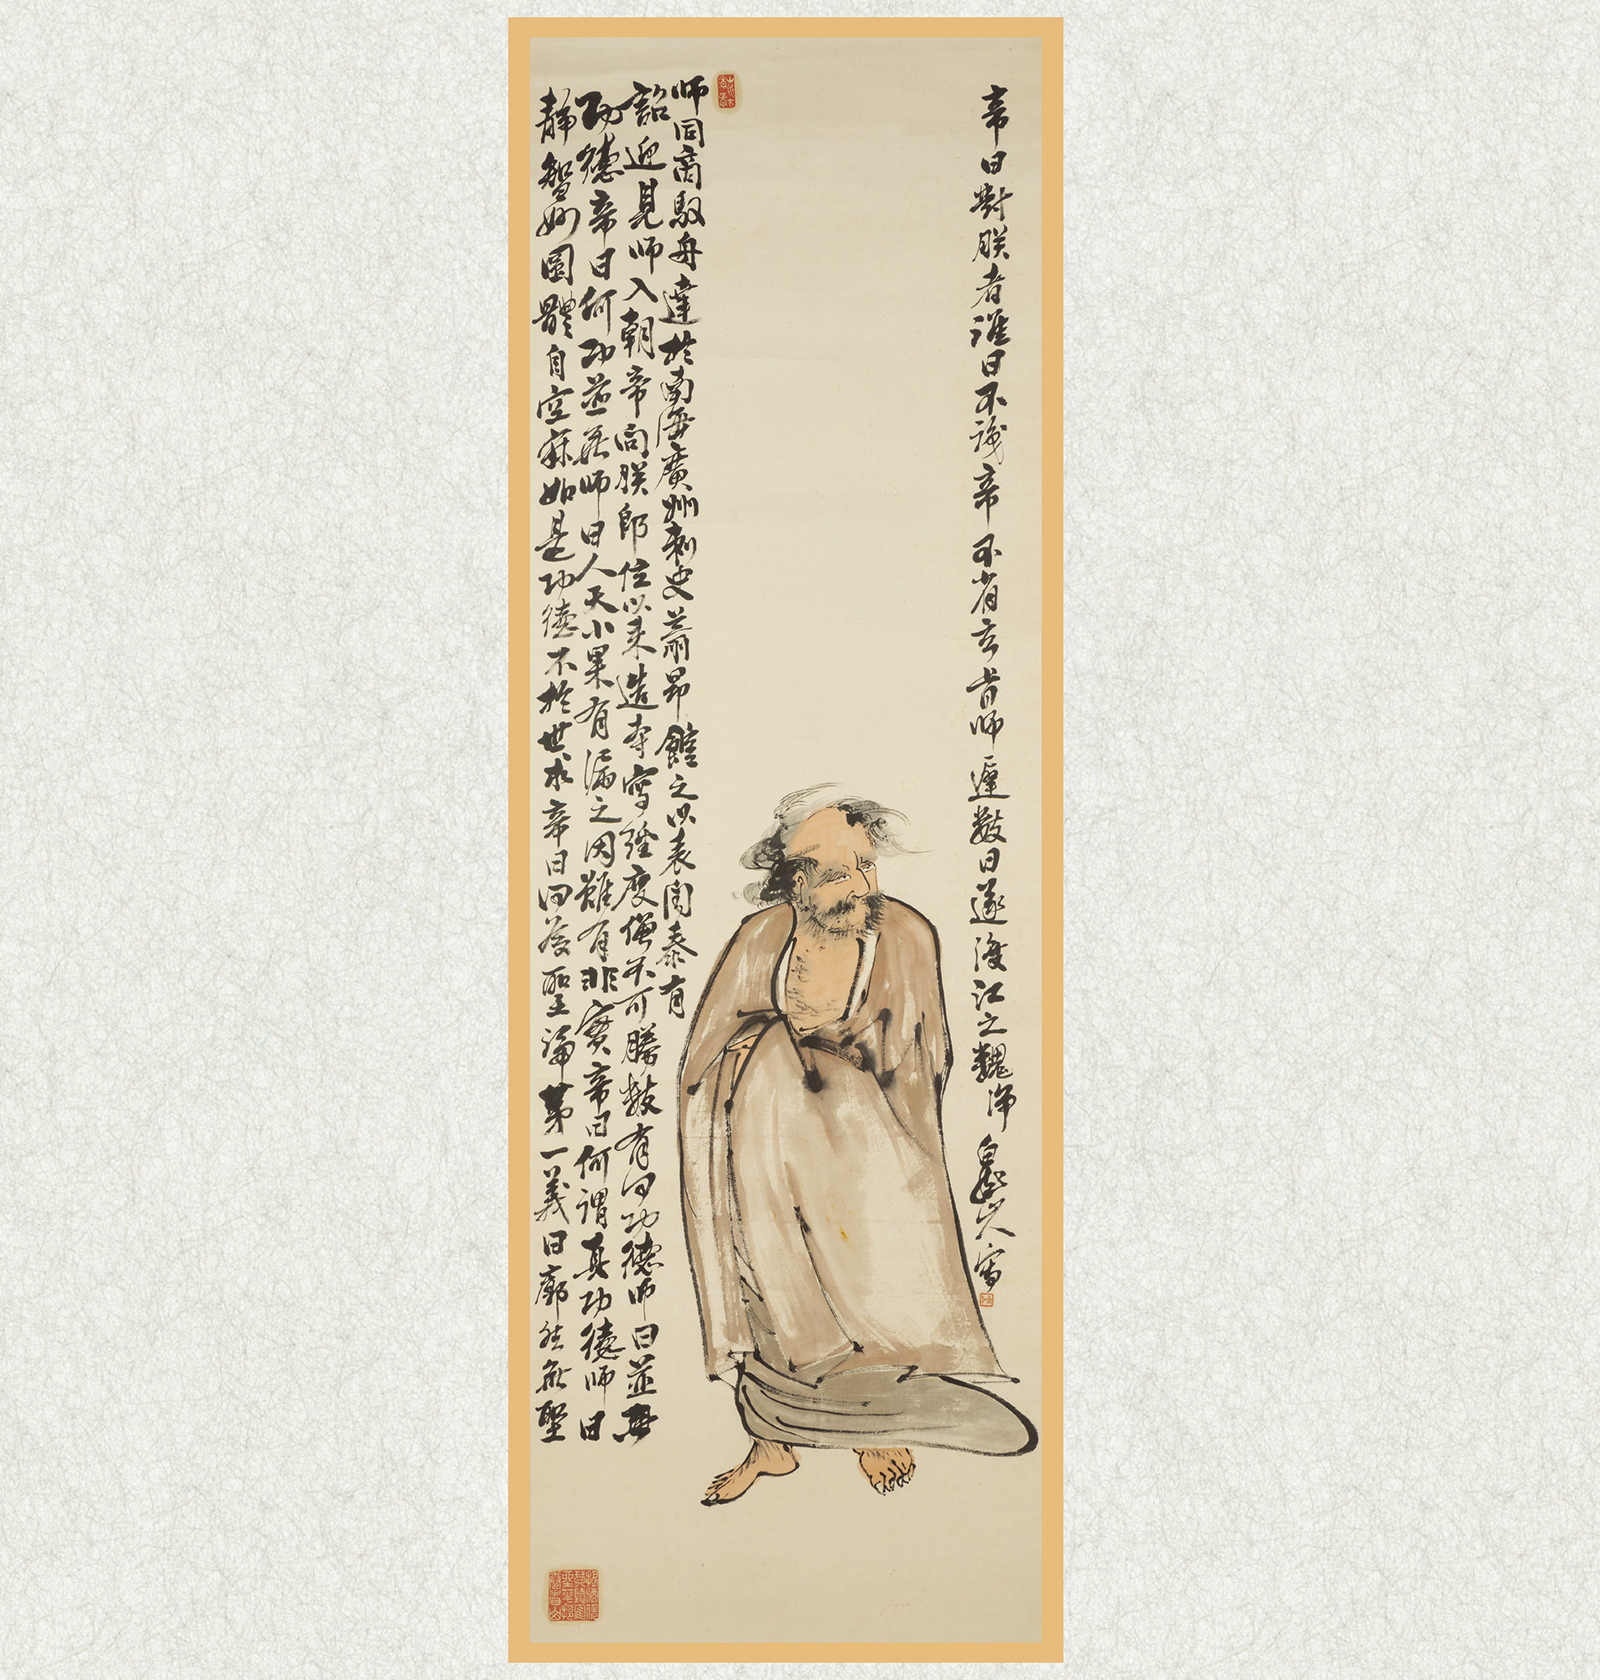 師同商駁舟達於南海廣州刺史蕭昂館之以表聞奏有
詔迎見師入朝帝問朕即位以來造寺寫經度僧不可勝數有何功德師曰並無
功德帝曰何功並無師曰人天小果有漏之因雖有非實帝曰何謂真功德師曰
靜智妙圓體自空寂如是功德不於世求帝曰何為聖諦第一義曰廓然無聖
帝曰對朕者誰曰不識帝不省玄旨師遲數日遂渡江之魏